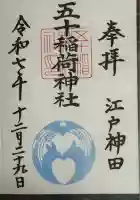 奉拝
江戸神田
五十稲荷神社
令和七年十二月二十九日